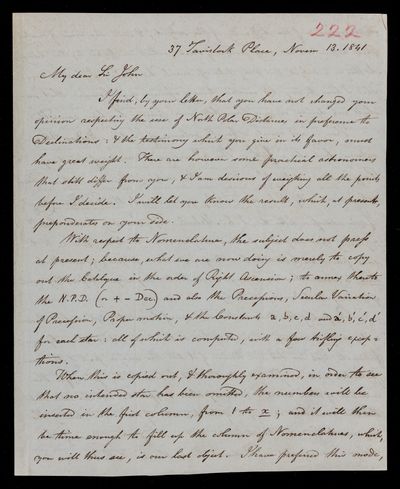 222
37 Tavistock Place, Novem 13. 1841
My dear Sir John
I find, by your letter, that you have not changed your
opinion respecting the use of North Polar Distances in preference to
Declinations: & the testimony which you give in its favor, must
have great weight. There are however some practical astronomers
that still differ from you, & I am desirous of weighing all the points
before I decide. I will let you know the result, which, at present,
preponderates on your side.
With respect to Nomenclature, the subject does not press
at present; because, what we are now doing is merely to copy
out the Catalogue in the order of Right Ascension; to annex thereto
the N.P.D. (or + - Dec) and also the Precessions, Secular Variation
of Precession, Proper motion, & the Constants a, b, c, d and a', b', c', d'
for each star: all of which is computed, with a few trifling excep-
tions.
When this is copied out, & thoroughly examined, in order to see
that no intended star has been omitted, the numbers will be
inserted in the first column, from 1 to x; and it will then
be time enough to fill up the column of Nomenclature, which,
you will thus see, is our last object. I have preferred this mode,